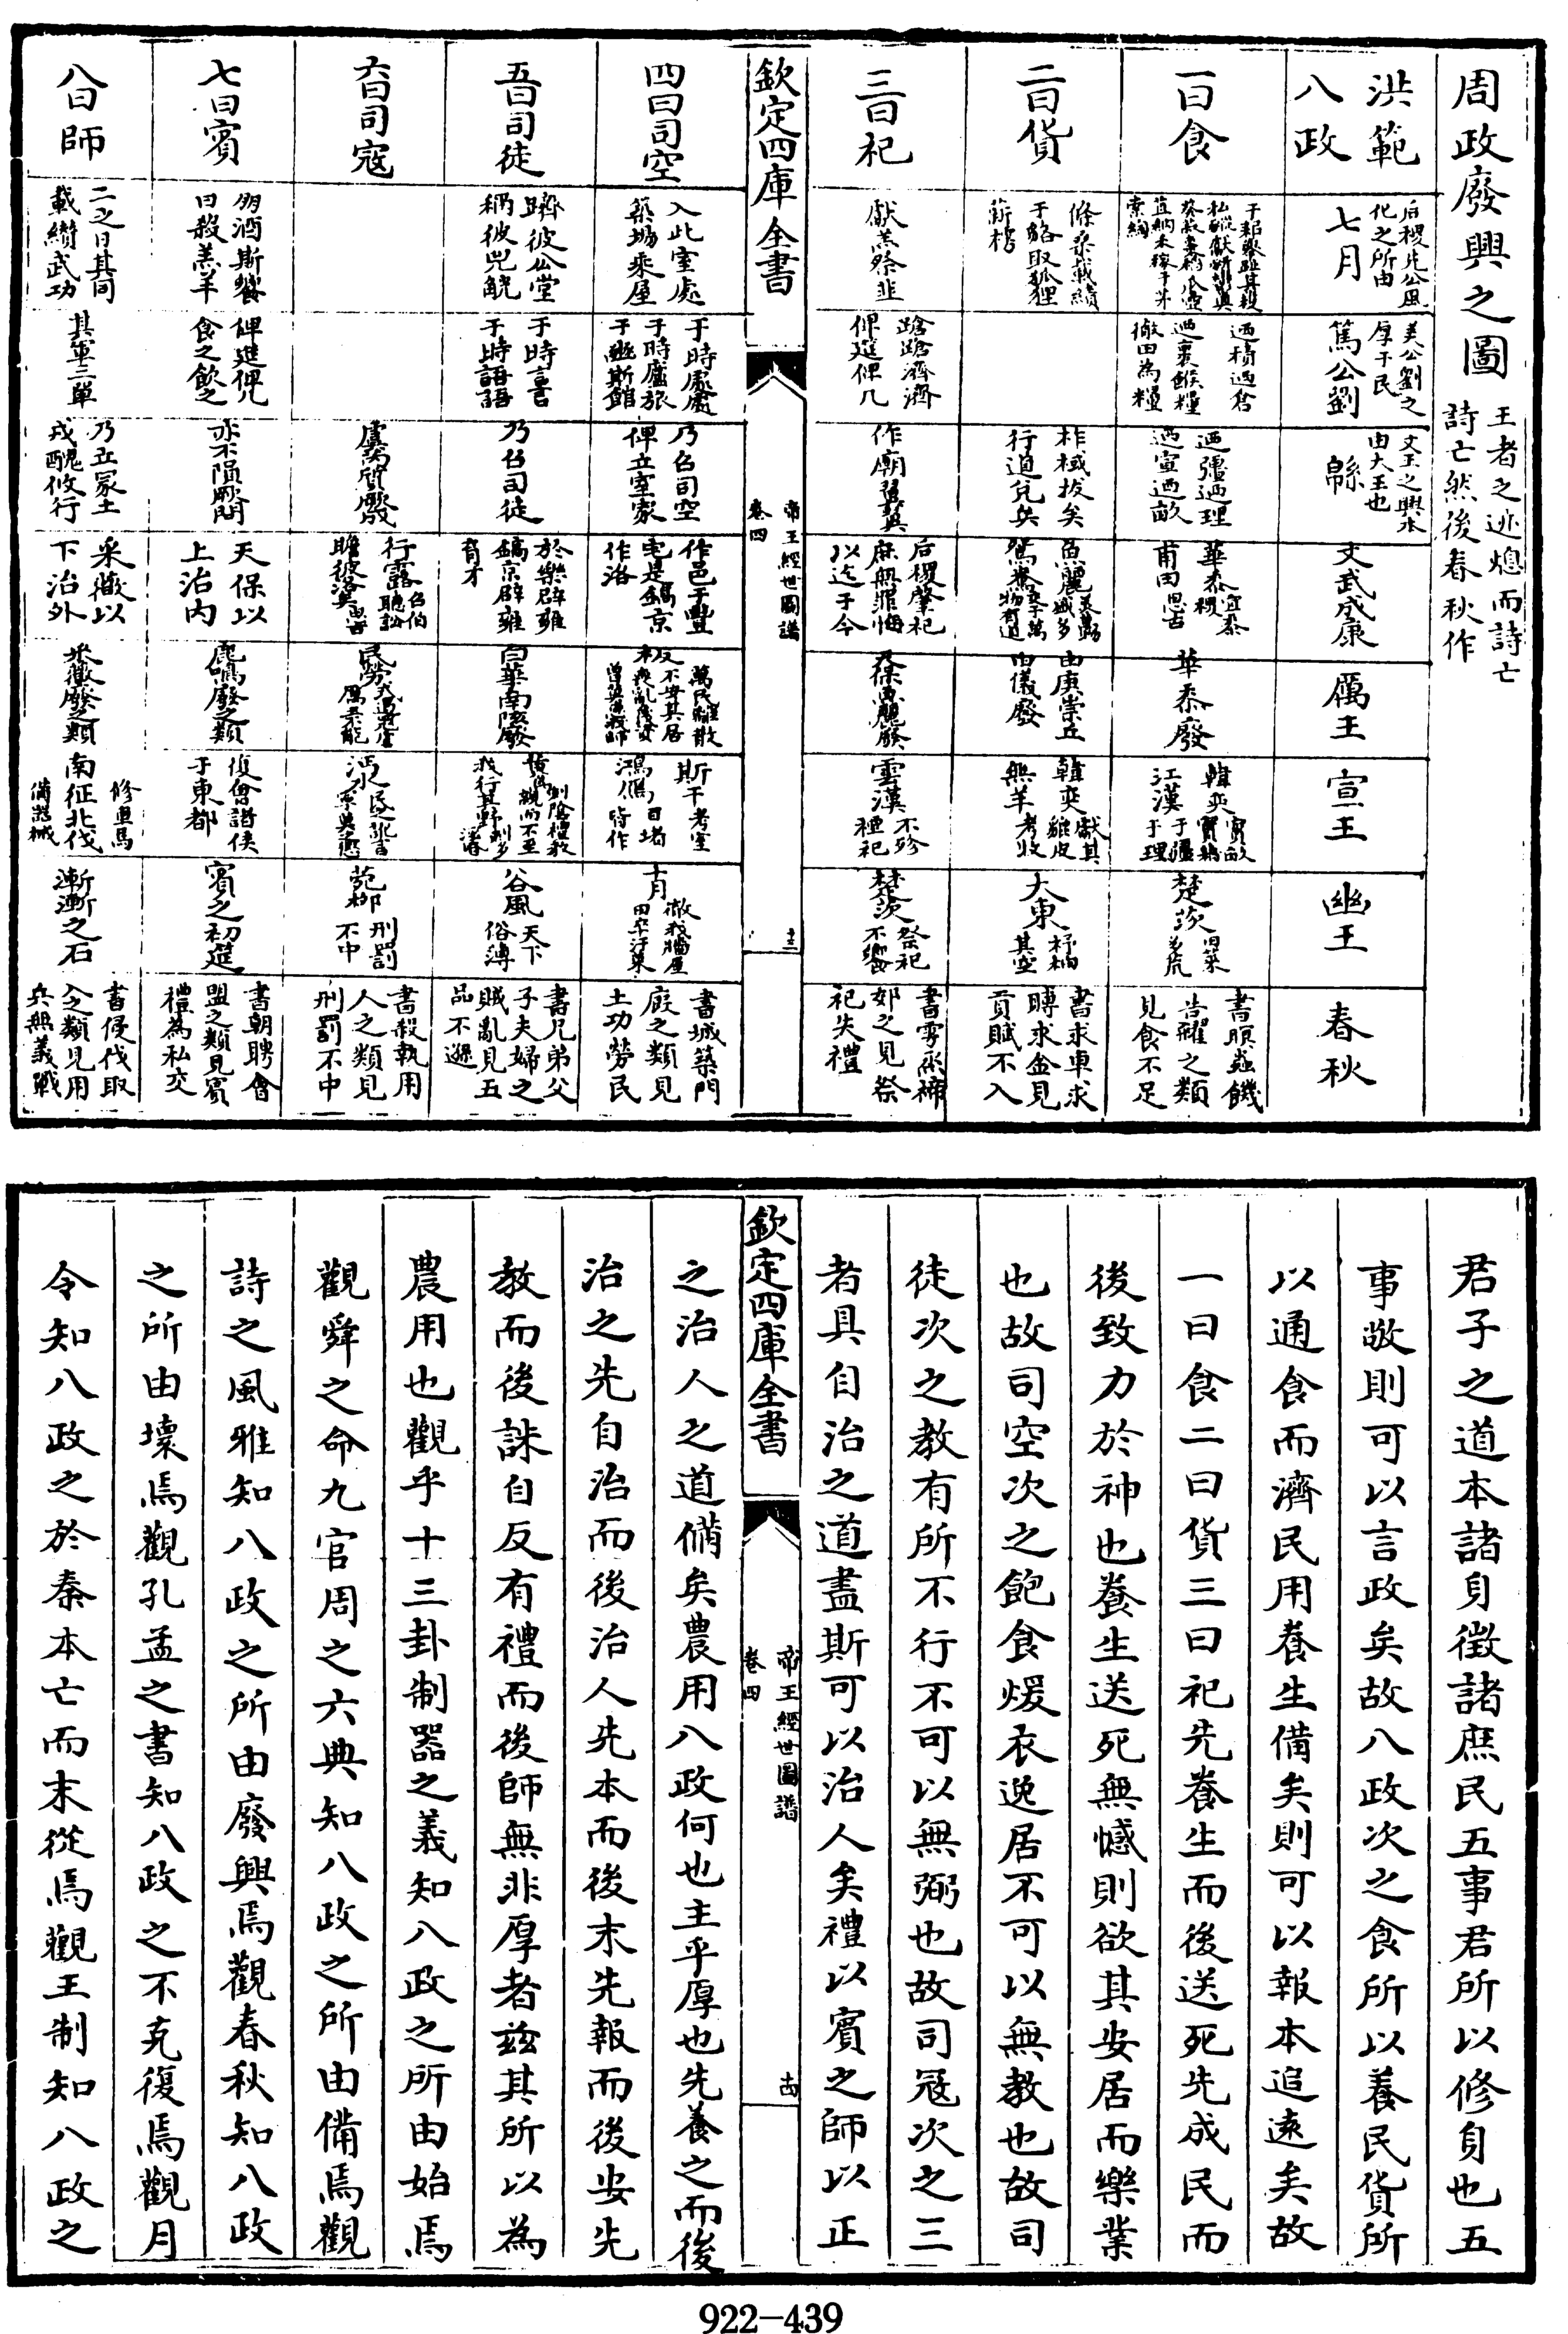 周政廢興之圖 王者之迹熄而詩亡
詩亡然後春秋作
洪範
八政
后稷先公風
化之所由
七月
美公劉之
厚于民
篤公劉
文王之興本
由大王也
緜
文武成康
厲王
宣王
幽王
春秋
一曰食
迺積迺倉
迺裹餱糧
徹田為糧
迺疆迺理
迺宣迺畝
華黍宜黍稷
甫田思古
華黍廢
韓奕實畝實籍
江漢于疆于理
楚茨
書螟螽饑
告糴之類
見食不足
二曰貨
條桑載績
于貉取狐狸
薪樗
柞棫拔矣
行道兌矣
魚麗
由庚崇丘
由儀廢
韓奕獻其貔皮
無羊考牧
大東杼柚其空
書求車求
賻求金見
貢賦不入
三曰祀
獻羔祭韭
蹌蹌濟濟
俾筵俾几
作廟翼翼
后稷肇祀
庶無罪悔
以迄于今
雲漢不殄禋祀
楚茨祭祀不饗
書雩烝禘
郊之見祭
祀失禮
欽定四庫全書
帝王經世圖譜
卷四
十三
四曰司空
入此室處
築場乘屋
于時處處
于時廬旅
于豳斯館
乃召司空
俾立室家
作邑于豐
宅是鎬京
作洛
萬民離散
不安其居
斯干考室
鴻鴈百堵皆作
十月徹我牆屋
田卒汙萊
書城築門
廄之類見
土功勞民
五曰司徒
躋彼公堂
稱彼兕觥
于時言言
于時語語
乃召司徒
於樂辟雍
鎬京辟雍
育才
白華南陔廢
我行其野
谷風天下俗薄
書兄弟父
子夫婦之
賊亂見五
品不遜
六曰司寇
虞芮質厥
行露召伯聽訟
瞻彼洛矣思古
民勞
沔水
菀柳刑罰不中
書殺執用
人之類見
刑罰不中
七曰賓
朋酒斯饗
曰殺羔羊
俾筵俾几
食之飲之
亦不隕厥問
天保以
上治內
鹿鳴廢之類
復會諸侯
于東都
賓之初筵
書朝聘會
盟之類見賓
禮為私交
八曰師
二之日其同
載纘武功
其軍三單
乃立冢土
戎醜攸行
采薇以
下治外
采薇廢之類
修車馬
南征北伐
備器械
漸漸之石
書侵伐取
入之類見用
兵無義戰
君子之道本諸身徵諸庶民五事君所以修身也五
事敬則可以言政矣故八政次之食所以養民貨所
以通食而濟民用養生備矣則可以報本追遠矣故
一曰食二曰貨三曰祀先養生而後送死先成民而
後致力於神也養生送死無憾則欲其安居而樂業
也故司空次之飽食煖衣逸居不可以無教也故司
徒次之教有所不行不可以無弼也故司冦次之三
者具自治之道盡斯可以治人矣禮以賓之師以正
欽定四庫全書
帝王經世圖譜
卷四
十四
之治人之道備矣農用八政何也主乎厚也先養之而後
治之先自治而後治人先本而後末先報而後安先
教而後誅自反有禮而後師無非厚者兹其所以為
農用也觀乎十三卦制器之義知八政之所由始焉
觀舜之命九官周之六典知八政之所由備焉觀
詩之風雅知八政之所由廢興焉觀春秋知八政
之所由壞焉觀孔孟之書知八政之不克復焉觀月
令知八政之於秦本亡而末從焉觀王制知八政之
922-439